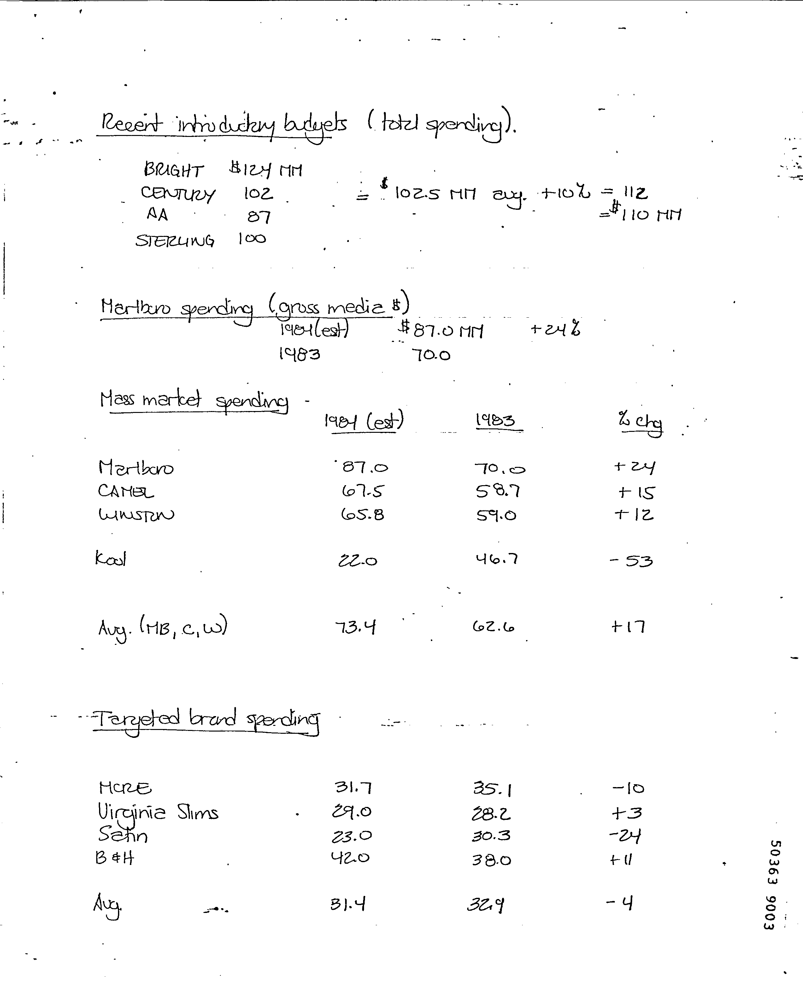 Recent introductory budgets (total spending).
BRIGHT $124 MM
CENTURY 102 = $102.5 MM avg. +10% = 112
AA 87 = $110 MM
STERLING 100
Marlboro spending (gross media $)
1984 (est) $87.0 MM +24%
1983 70.0
Mass market spending -
1984 (est) 1983 % chg
Marlboro 87.0 70.0 +24
CAMEL 67.5 58.7 +15
WINSTON 65.8 59.0 +12
Kool 22.0 46.7 -53
Avg. (MB, C, W) 73.4 62.6 +17
Targeted brand spending
MORE 31.7 35.1 -10
Virginia Slims 29.0 28.2 +3
Satin 23.0 30.3 -24
B &H 42.0 38.0 +11
Avg. 31.4 32.9 -4
50363 9003